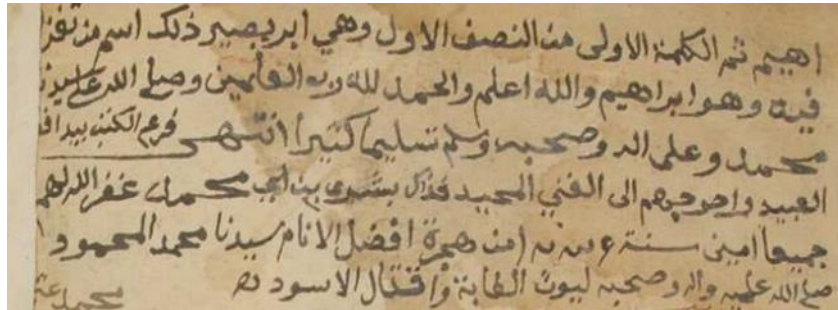 اهيم ثم الكلمة الاولى من النصف الاول وهي ابر يصير ذلك اسم من
فيه وهو ابراهيم والله اعلم والحمد لله رب العالمين وصلى الله على سيدنا
محمد وعلى اله وصحبه وسلم تسليما كثيرا انتهى فرغم الكتب بيد افقر
العبيد واحوجهم الى الغني المجيد بن ابي محمد غفر الله لهم
جميعا امين سنة من هجرة افضل الانام سيدنا محمد المحمود
صلى الله عليه واله وصحبه ليوث الغابة الاسود
محمد